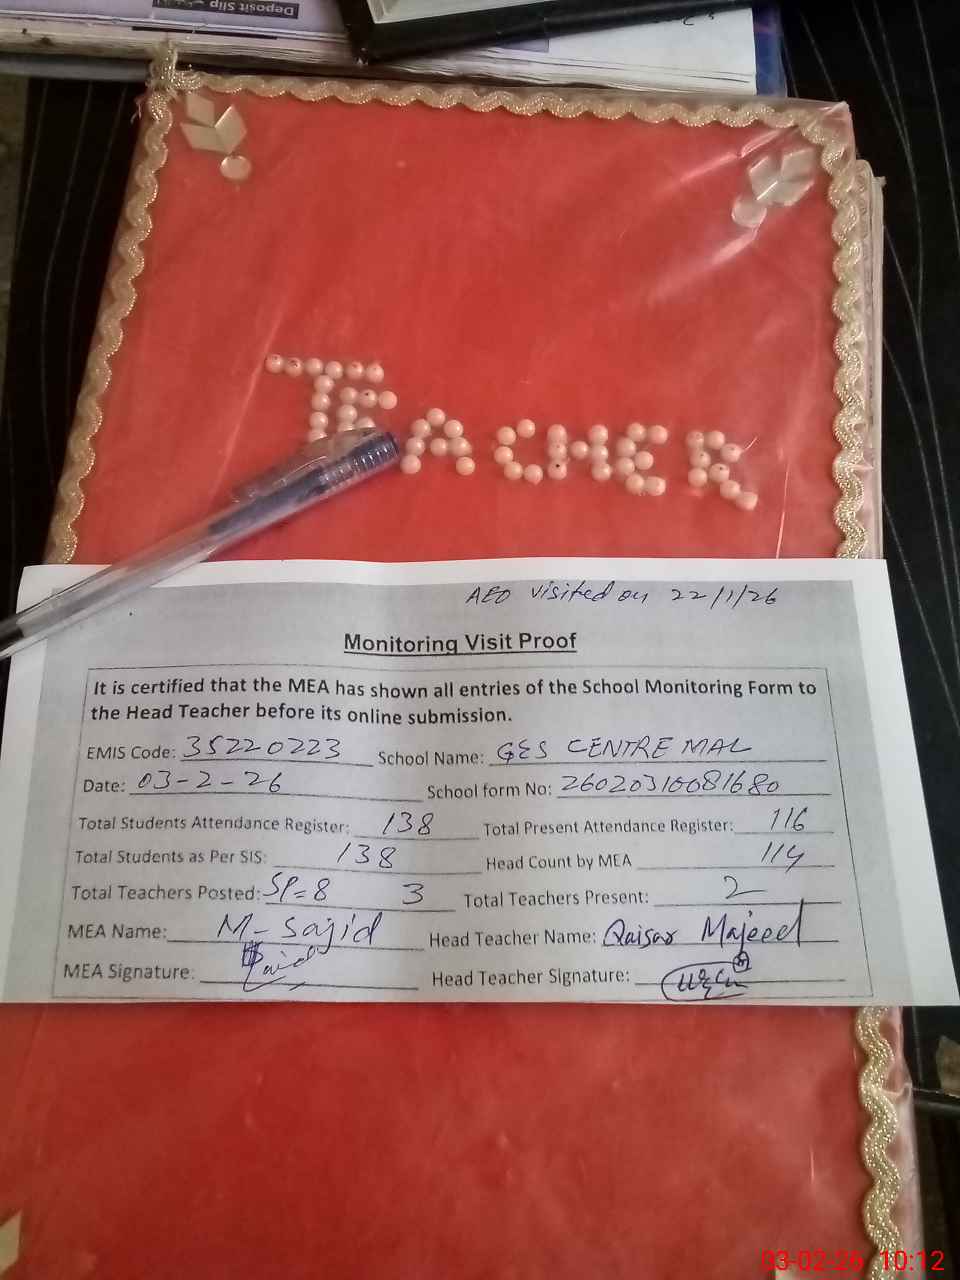 Deposit Slip
TEACHER
AEO visited on 22/1/26
Monitoring Visit Proof
It is certified that the MEA has shown all entries of the School Monitoring Form to
the Head Teacher before its online submission.
EMIS Code: 35220223 School Name: GES CENTRE MAL
Date: 03-2-26 School form No: 26020310081680
Total Students Attendance Register: 138 Total Present Attendance Register: 116
Total Students as Per SIS: 138 Head Count by MEA 114
Total Teachers Posted: SP=8 3 Total Teachers Present: 2
MEA Name: M-Sajid Head Teacher Name: Qaisar Majeed
MEA Signature: Head Teacher Signature:
03-02-26 10:12